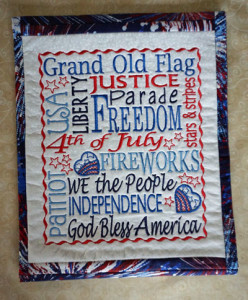 Grand Old Flag
USA
LIBERTY
JUSTICE
Parade
FREEDOM
stars & stripes
4th of July
Patriot
FIREWORKS
WE the People
INDEPENDENCE
God Bless America